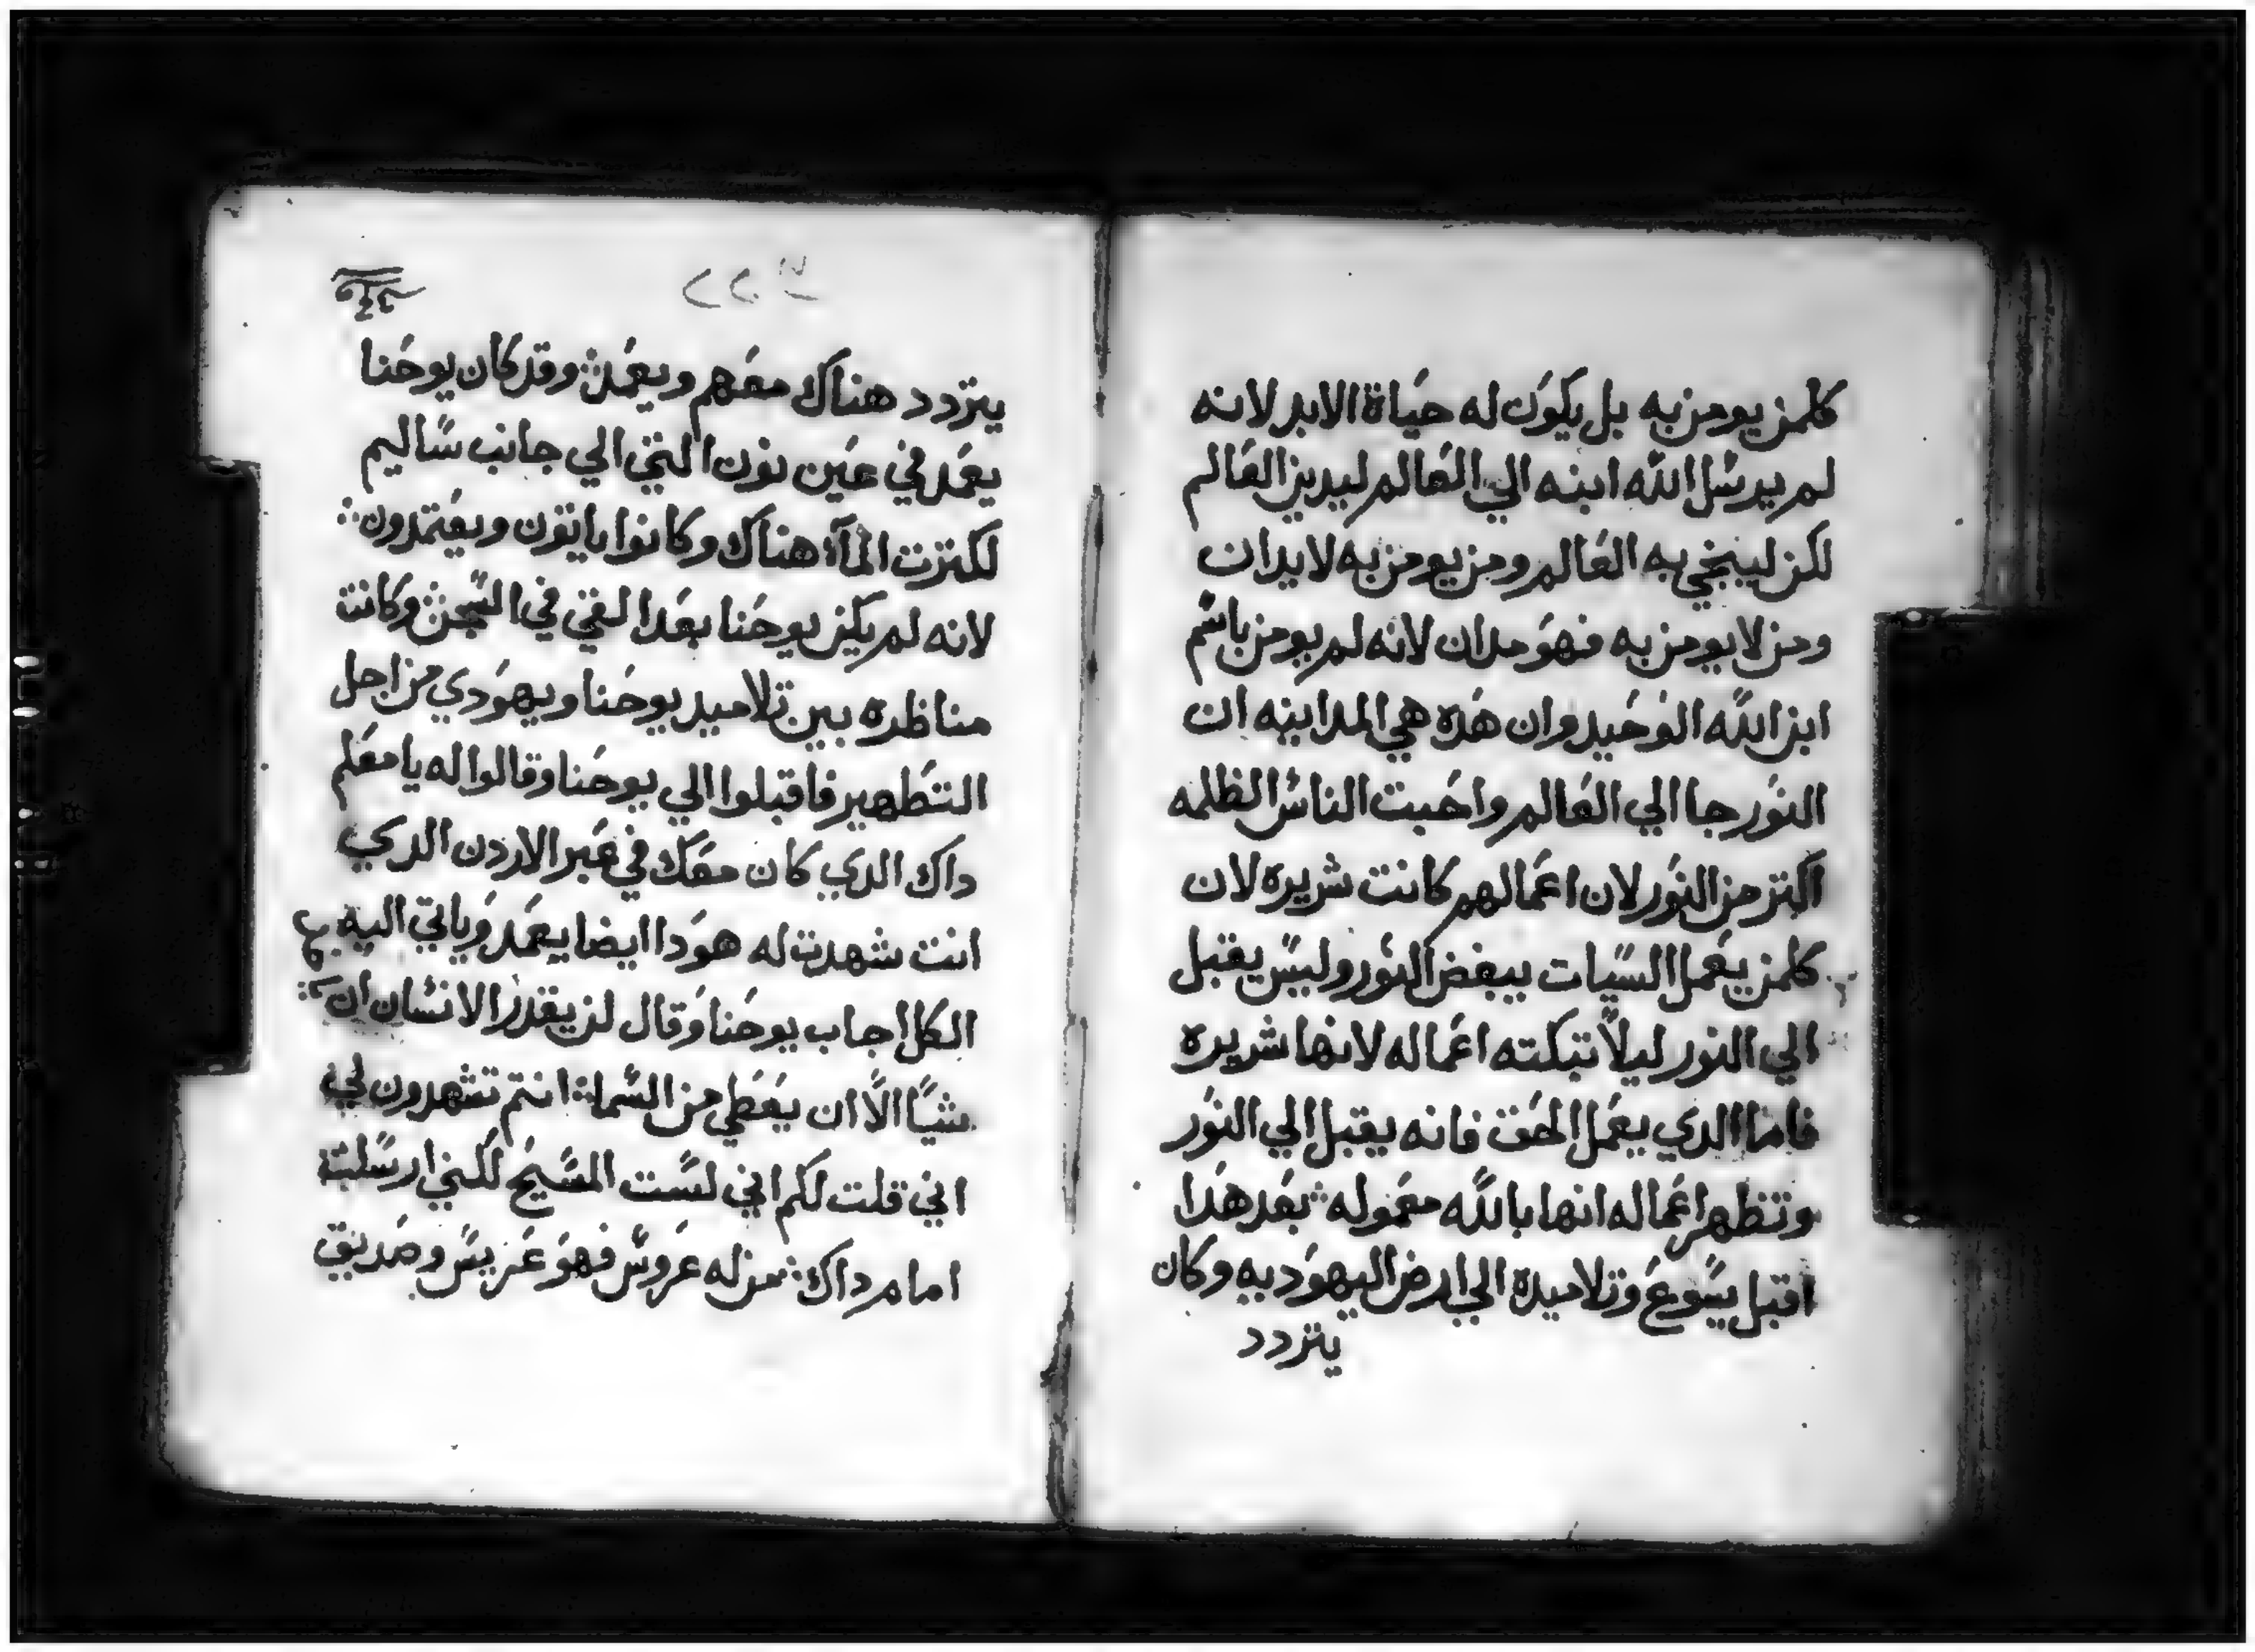 كلمن يومن به بل يكون له حياة الابد لانه
لم يرسل الله ابنه الي العالم ليدين العالم
لكن لينجي به العالم ومن يومن به لا يدان
ومن لا يومن به فهو مدان لانه لم يومن باسم
ابن الله الوحيد وان هده هي المداينه ان
النور جا الي العالم واحبت الناس الظلمه
اكتر من النور لان اعمالهم كانت شريره لان
كلمن يعمل السيات يبغض النور وليس يقبل
الي النور ليلا تبكته اعماله لانها شريره
فاما الدي يعمل الحق فانه يقبل الي النور
وتظهر اعماله انها بالله معموله ؞ بعد هدا
اقبل يسوع وتلاميده الي ارض اليهوديه وكان
يتردد
يتردد هناك معهم ويعمد ؞ وقد كان يوحنا
يعمد في عين نون التي الي جانب ساليم
لكترت المآء هناك وكانوا ياتون ويعتمدون ؞
لانه لم يكن يوحنا بعد القي في السجن ؞ وكانت
مناظره بين تلاميد يوحنا ويهودي من اجل
التطهير فاقبلوا الي يوحنا وقالوا له يا معلم
داك الدي كان معك في عبر الاردن الدي
انت شهدت له هودا ايضا يعمد وياتي اليه
الكل اجاب يوحنا وقال لن يقدر الانسان ان
شيًا الا ان يعطي من السما ؞ انتم تشهدون لي
اني قلت لكم اني لست المسيح لكني ارسلت
امام داك ؞ من له عروس فهو عريس وصديق